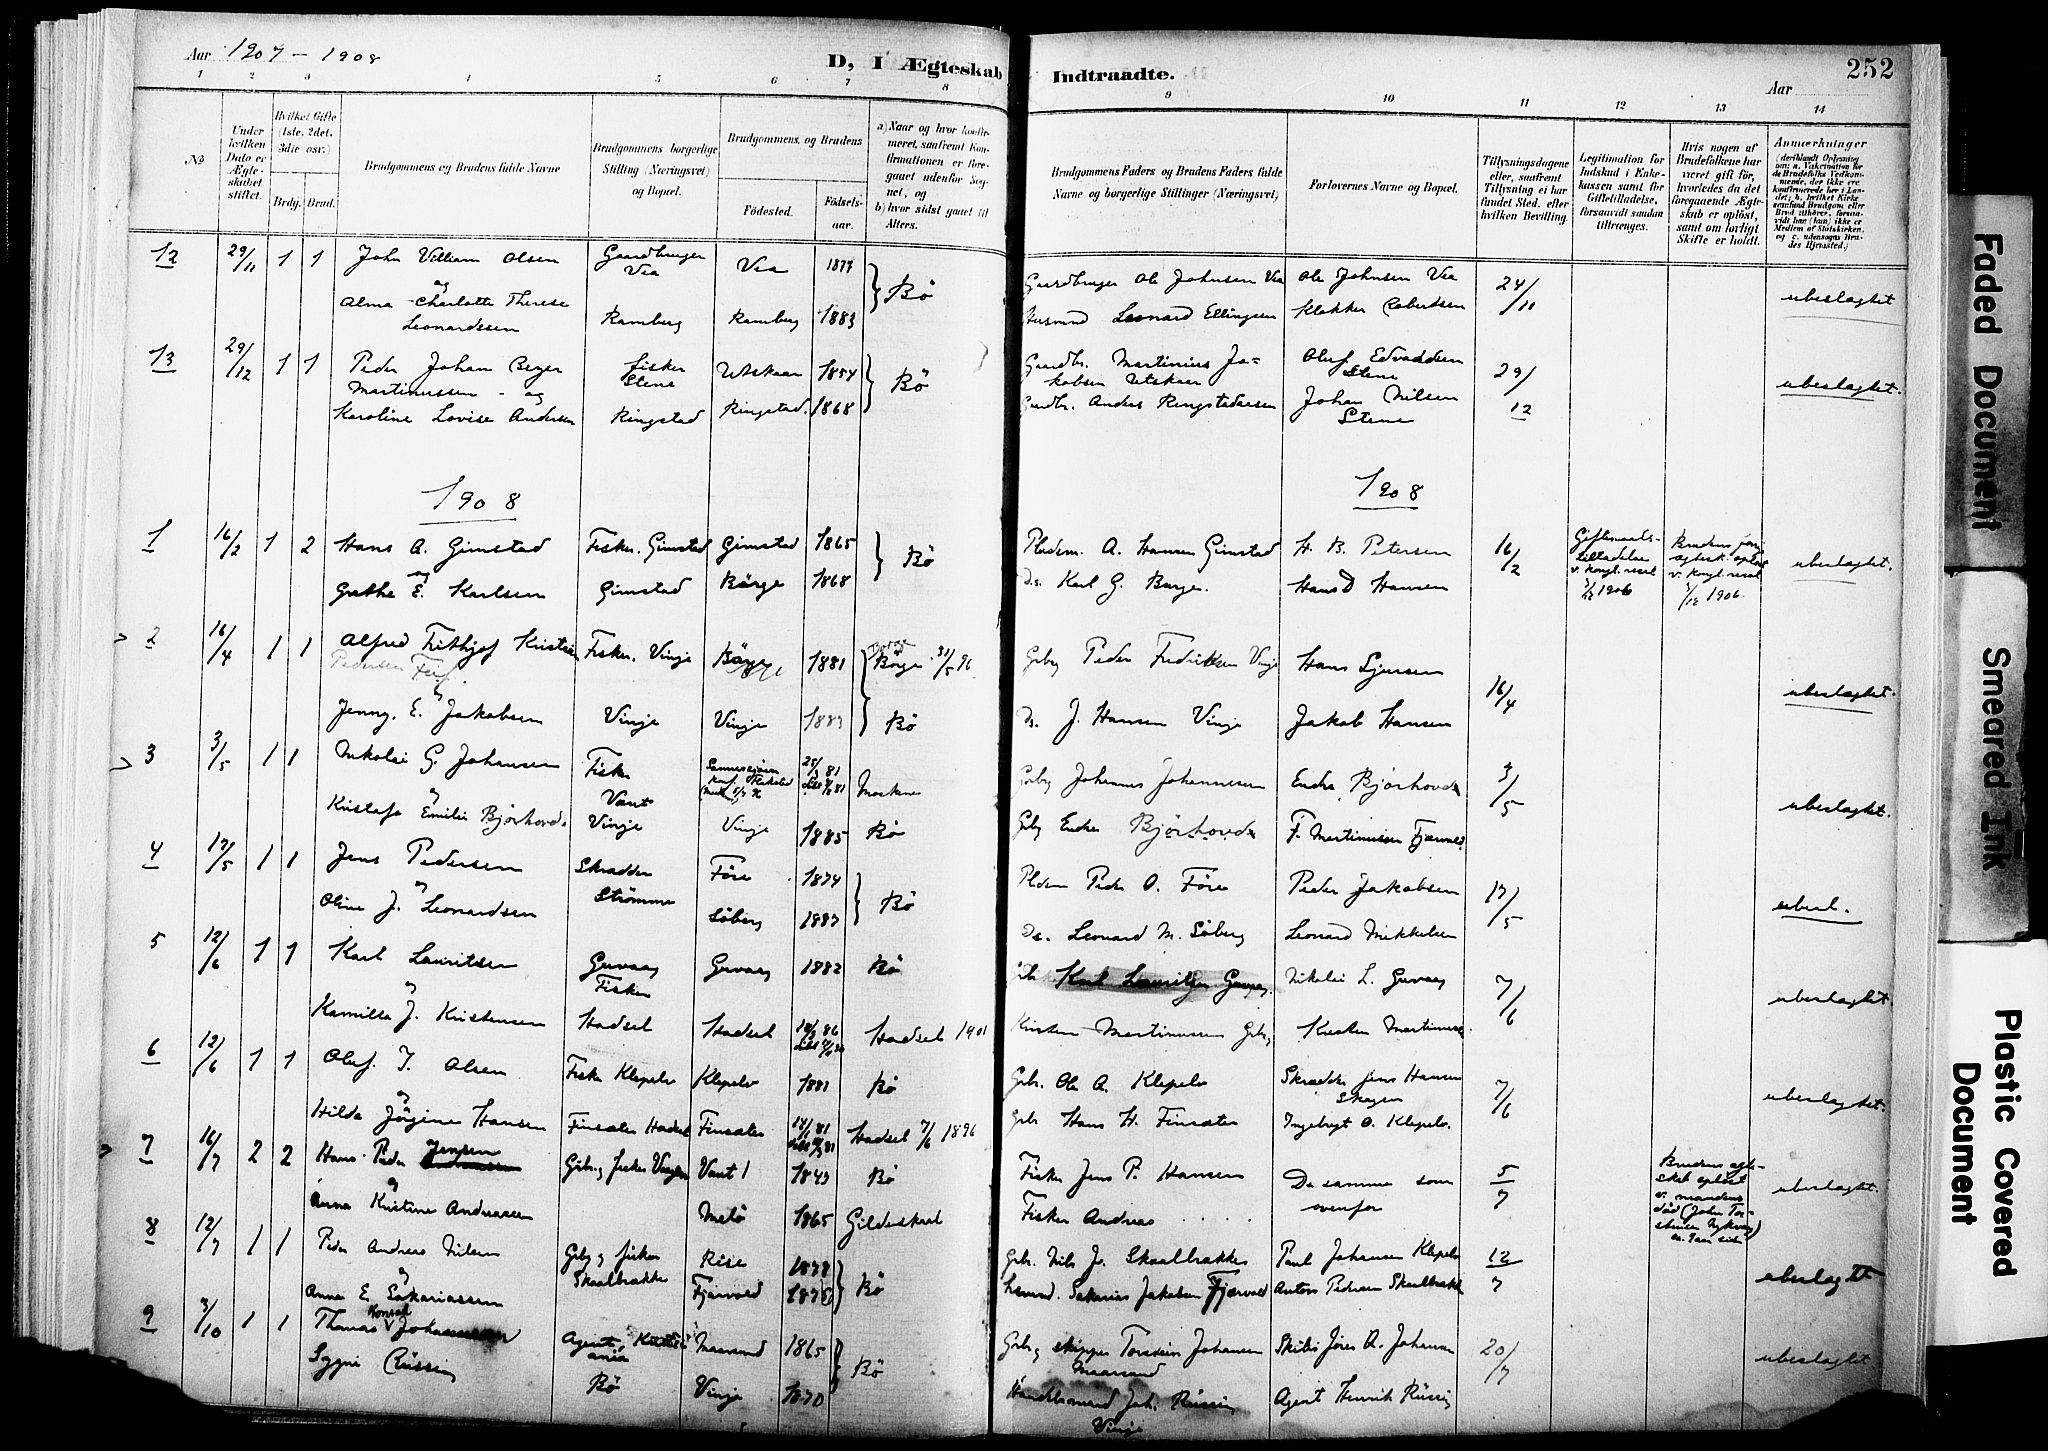 Aar 1907 – 1908
D, I Ægteskab Indtraadte.
252
Aar
1 2 3 4 5 6 7 8 9 10 11 12 13 14
No
Under hvilken Dato er Ægteskabet stiftet.
Hvilket Gifte (1ste. 2det. 3die osv.)
Brdg. Brud.
Brudgommens og Brudens fulde Navne
Brudgommens borgerlige Stilling (Næringsvei) og Bopæl.
Brudgommens og Brudens
Fødested.
Fødselsaar.
a) Naar og hvor konfirmeret, saafremt Konfirmationen er foregaaet udenfor Sognet, og
b) hvor sidst gaaet til Alters.
Brudgommens Faders og Brudens Faders fulde Navne og borgerlige Stillinger (Næringsvei)
Forlovernes Navne og Bopæl.
Tillysningsdagene eller, saafremt Tillysning ei har fundet Sted, efter hvilken Bevilling.
Legitimation for Indskud i Enkekassen samt for Giftetilladelse, forsaavidt saadan tiltrænges.
Hvis nogen af Brudefolkene har været gift før, hvorledes da det foregaaende Ægteskab er opløst, samt om lovligt Skifte er holdt.
Anmerkninger
12 29/11 1 1 John William Olsen Gaardbruger Vea Vea 1877 Bö Gaardbruger Ole Johnsen Vea Ole Johnsen Vea 24/11 ubeslagtet
og
Alma Charlotte Therese Leonardssen Ramberg Ramberg 1883 Husmand Leonard Ellingsen Klokker Robertsen
13 29/12 1 1 Peder Johan Beyer Martinussen og fisker Stene Utskaar 1854 Bö Gaardbr. Martinius Jakobsen Utskaar Oluf Edvardsen Stene 29/12 ubeslagtet.
Karoline Lovise Andersen Ringstad Ringstad. 1868 Gaardbr. Anders Ringstadaasen Johan Nilsen Stene
1908 1908
1 16/2 1 2 Hans A. Gimstad Fisker. Gimstad Gimstad 1865 Bö Pladsm. A. Hansen Gimstad H. B. Petersen 16/2 Giftermaalstilladelse v. kongl. resol 1906 Brudens forr. ægtesk. opløst v. kongl. resol 1906. ubeslagtet.
og
Grethe E. Karlsen Gimstad Börge 1868 Ds. Karl G. Børge. Hans D Hansen
2 16/4 1 1 Alfred Frithjof Kristian Pedersen Fisker. Vinje Börge 1881 Børge 31/5 96 Grbg Peder Fredriksen Vinje Hans Sjursen 16/4 ubeslagtet.
Jenny. E. Jakobsen Vinje Vinje 1883 Bö Ds. J. Hansen Vinje Jakob Hansen
3 3/5 1 1 Nikolai G. Johansen Fisker Vant 81 Grbg Johannes Johannesen Endre Björhovde 3/5 ubeslagtet.
Kristofa Emilie Björhovde Vinje Vinje 1885 Bö Grbg Endre Björhovde F. Martinussen Fjærvold.
4 17/5 1 1 Jens Pedersen Skrædder Strömme Före 1874 Bö Pldsm Peder O. Före Peder Jakobsen 17/5 ubesl.
Oline J. Leonardsen Söberg 1887 Ds. Leonard M. Söberg Leonard Mikkelsen
5 12/6 1 1 Karl Lauritsen Guvaag Fisker Guvaag 1882 Bö Grbr Karl Lauritsen Guvaag. Nikolai L. Guvaag 7/6 ubeslagtet.
Kamilla J. Kristensen Hadsel Hadsel 86 Hadsel 1901 Kristen Martinussen Grbg Kristen Martinussen
6 12/6 1 1 Oluf. J. Olsen Fisker Klepelv Klepelv 1881 Bö Grbr. Ole A. Klepelv Skrædder Jens Hansen Skagen 7/6 ubeslagtet.
Hilda Jörgine Hansen Finsæter Hadsel Finsæter 81 Hadsel 7/6 1896 Grbr Hans H. Finsæter Ingebrigt O. Klepelv.
7 16/7 2 2 Hans Peder Jensen Grbr og fisker Vant 1843 Bö Fisker Jens P. Hansen De samme som ovenfor 5/7 Brudens ægteskab opløst v. mandens død ubeslagtet.
Anna Kristine Andreassen Melö 1865 Gildeskaal Fisker Andreas . . . . .
8 12/7 1 1 Peder Andreas Nilsen Grbr og fisker Skaalbrække Rise 1878 Bö Grbr. Nils Jr. Skaalbrække Paul Johansen Klepelv 12/7 ubeslagtet
Anna E. Sakariassen Fjærvold 1876 Husmand. Sakarias Jakobsen Fjærvold Anton Pedersen Skaalbrække
9 3/10 1 1 Thomas Konrad Johannessen Agent, Kristiania Maarsund 1865 Bö Grbr og skipper Torstein Johansen Maarsund Jörer A. Johansen 20/7 ubeslagtet.
Sygni Rüssing Bö Vinje 1870 Handelsmand Joh. Rüssing Vinje Agent Henrik Rüssing
Faded Document
Smeared Ink
Plastic Covered Document